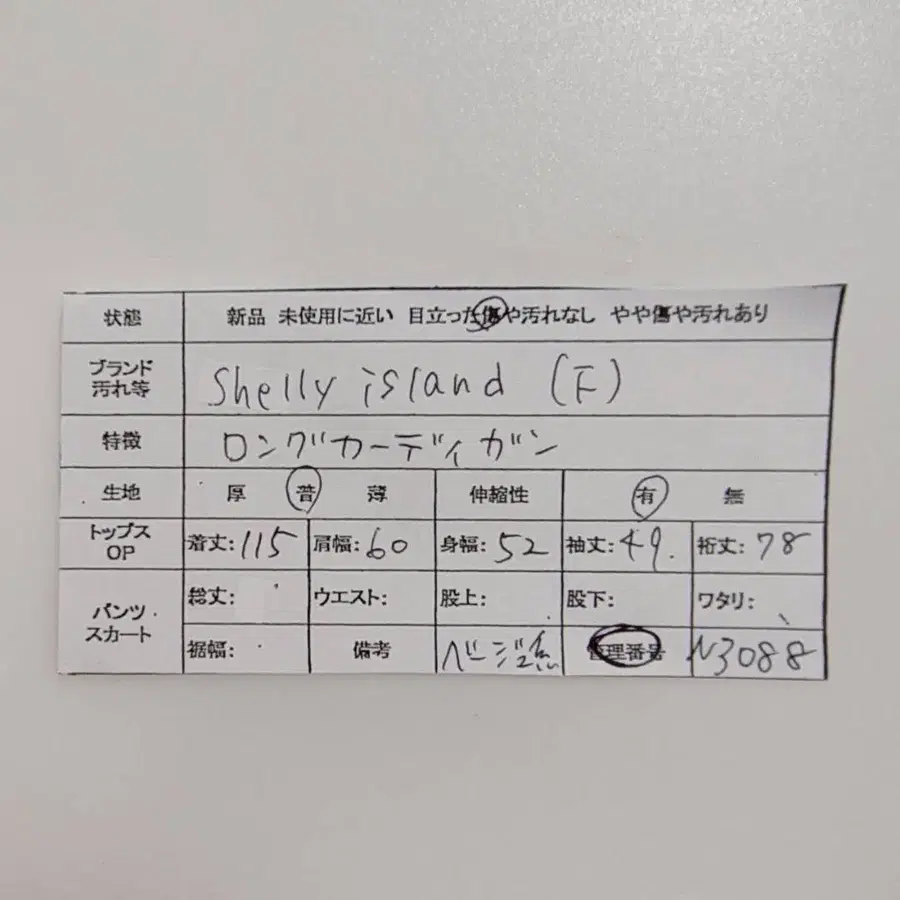 状態 新品 未使用に近い 目立った傷や汚れなし やや傷や汚れあり
ブランド
汚れ等
Shelly island (F)
特徴 ロングカーディガン
生地 厚 普 薄 伸縮性 有 無
トップス
OP
着丈:115 肩幅:60 身幅:52 袖丈:49. 裄丈:78
パンツ
スカート
総丈: ウエスト: 股上: 股下: ワタリ:
裾幅: 備考 ベージュ 管理番号 N3088